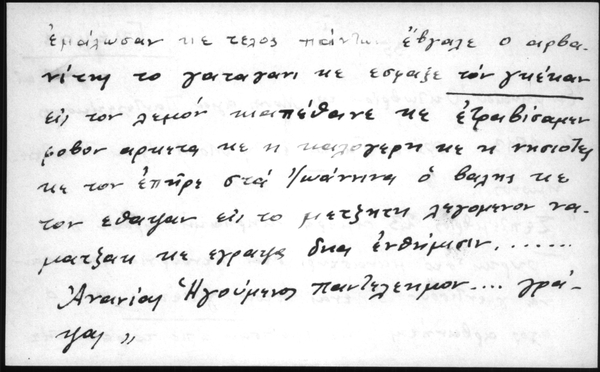 ἐμάλωσαν κε τελος πάντων ἔβγαλε ο αρβα-
νίτης το γαταγανι κε εσφαξε τόν γκέκαν
εἰς τον λεμόν και απέθανε κε ἐτραβισαμεν
φοβον αρκετα κε η καλογερη κε η νησιοτες
κε τον ἐπῆρε στά Ἰωάννινα ὁ βαλης κε
τον εθαψαν εἰς το μετζητη λεγομενον να-
ματζακ κε εγραψα δια ἐνθήμισιν.......
Ἀνανίας Ἡγούμενος παντελεημον.... γρά-
ψας "